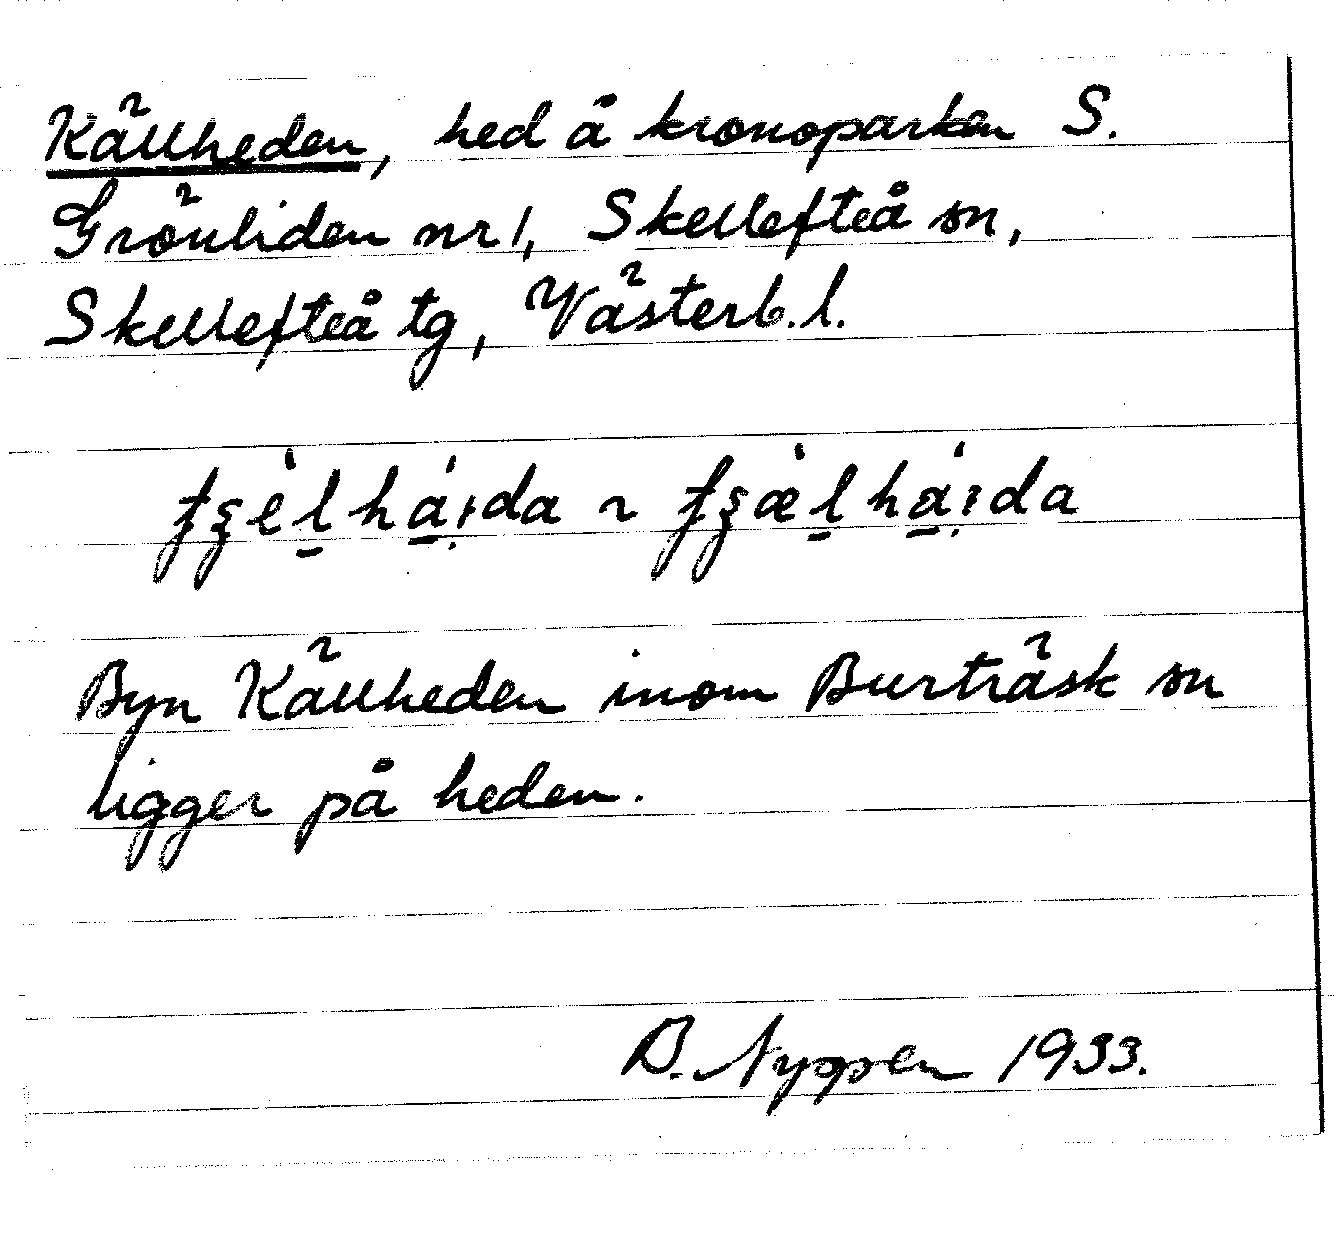 Källheden, hed å kronoparken S.
Grönliden nr 1, Skellefteå sn,
Skellefteå tg, Västerb.l.
Byn Källheden inom Burträsk sn
ligger på heden.
B. 1933.